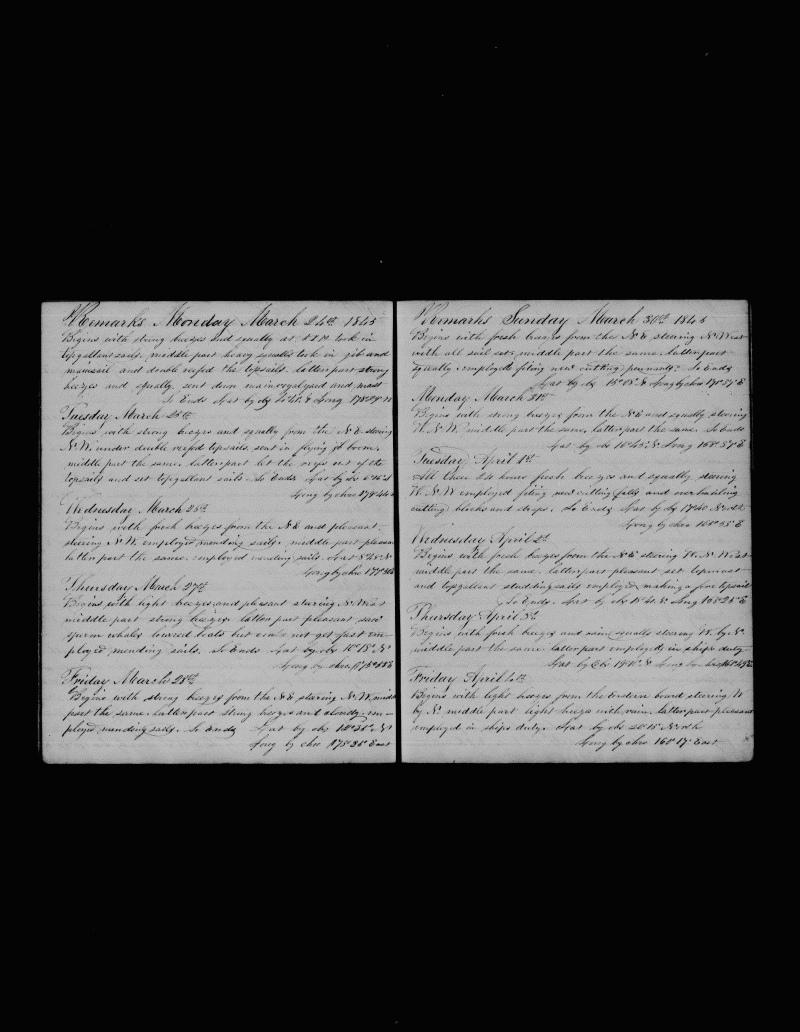 Remarks Monday March 24th 1845
Begins with strong breezes and squally at took in
topgallant sails. middle part heavy squalls took in jib and
mainsail and double reefed the topsails. latter part strong
breezes and squally. sent down mainroyalyard and mast
So Ends Lat by obs Long
Tuesday March 25th
Begins with strong breezes and squally from the N.E. steering
N.W. under double reefed topsails. sent in flying jib boom.
middle part the same. latter part let the reefs out of the
topsails and set topgallant sails. So Ends Lat by
Long by chro
Wednesday March 26th
Begins with fresh breezes from the N.E. and pleasant.
steering N.W. employed mending sails. middle part pleasant
latter part the same. employed mending sails. Lat
Long by chro
Thursday March 27th
Begins with light breezes and pleasant steering N.West
middle part strong breezes. latter part pleasant saw
sperm whales lowered boats but could not get fast em-
ployed mending sails. So Ends Lat by obs 10° 18' N
Long by chro
Friday March 28th
Begins with strong breezes from the N.E. steering N.W. middle
part the same. latter part strong breezes and cloudy. em-
ployed mending sails. So Ends Lat by obs N
Long by chro 175° 35' East
Remarks Sunday March 30th 1845
Begins with fresh breezes from the N.E. steering N.West
with all sail set. middle part the same. latter part
squally. employed fiting new cutting pennants. So Ends
Lat by obs 15° 18' N Long by chro
Monday March 31st
Begins with strong breezes from the N.E. and squally steering
W.N.W. middle part the same, latter part the same. So Ends
Lat by obs 16° 45' N Long
Tuesday April 1st
All these 24 hours fresh breezes and squally steering
W.N.W. employed fiting new cutting falls and overhauling
cutting blocks and straps. So Ends Lat by North
Long by chro E
Wednesday April 2d
Begins with fresh breezes from the N.E. steering W.N.West
middle part the same. latter part pleasant set topmast
and topgallant studding sails employed making a fore topsail
So Ends. Lat by obs N Long E
Thursday April 3d
Begins with fresh breezes and rain squalls steering W. by N.
middle part the same. latter part employed in ships duty
Lat by N Long by chro
Friday April 4th
Begins with light breezes from the Eastern board steering W
by N. middle part light breezes with rain. latter part pleasant
employed in ships duty. Lat by obs North
Long by chro 160° 17' East